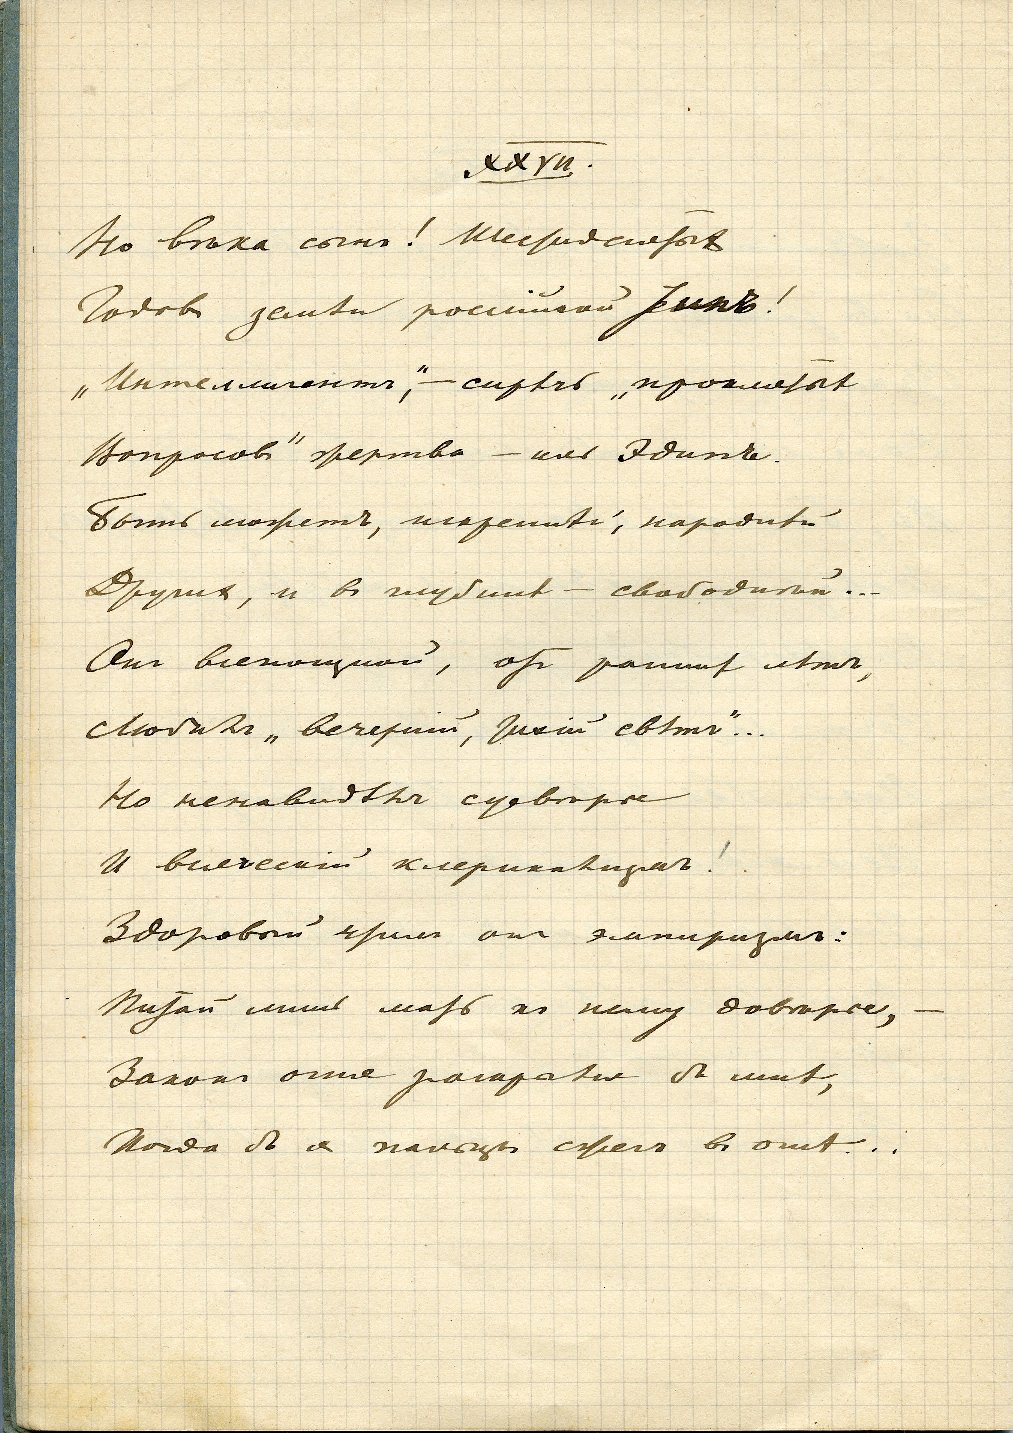 XXVII.
Но вѣка сынъ! Шестидесятыхъ
Годовъ земли россійской типъ!
„Интеллигентъ", — сирѣчь „проклятыхъ
Вопросовъ" жертва — иль Эдипъ.
Быть можетъ, искреннѣй, народнѣй
Другихъ, и въ глубинѣ — свободнѣй...
Онъ всенощной, отъ раннихъ лѣтъ,
Любилъ „вечерній, тихій свѣтъ"...
Но ненавидѣлъ суевѣрье
И всяческій клерикализмъ!
Здоровый чтилъ онъ эмпиризмъ:
Питай лишь мать къ нему довѣрье, —
Законъ огня раскрытъ бъ мнѣ,
Когда бъ я пальцы сжегъ въ огнѣ...